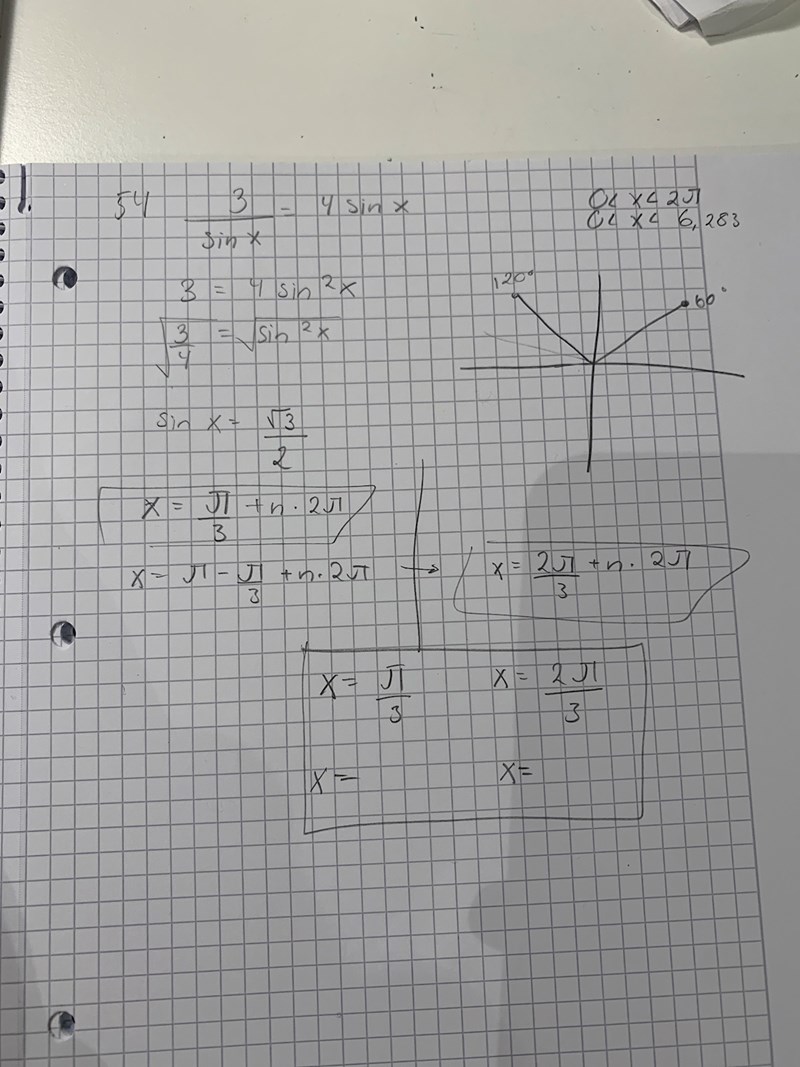 1.
54 3/sin x = 4 sin x
0 < x < 2π
0 < x < 6,283
3 = 4 sin²x
120°
60°
√(3/4) = √(sin²x)
sin x = √3/2
x = π/3 + n · 2π
x = π - π/3 + n · 2π → x = 2π/3 + n · 2π
x = π/3 x = 2π/3
x = x =